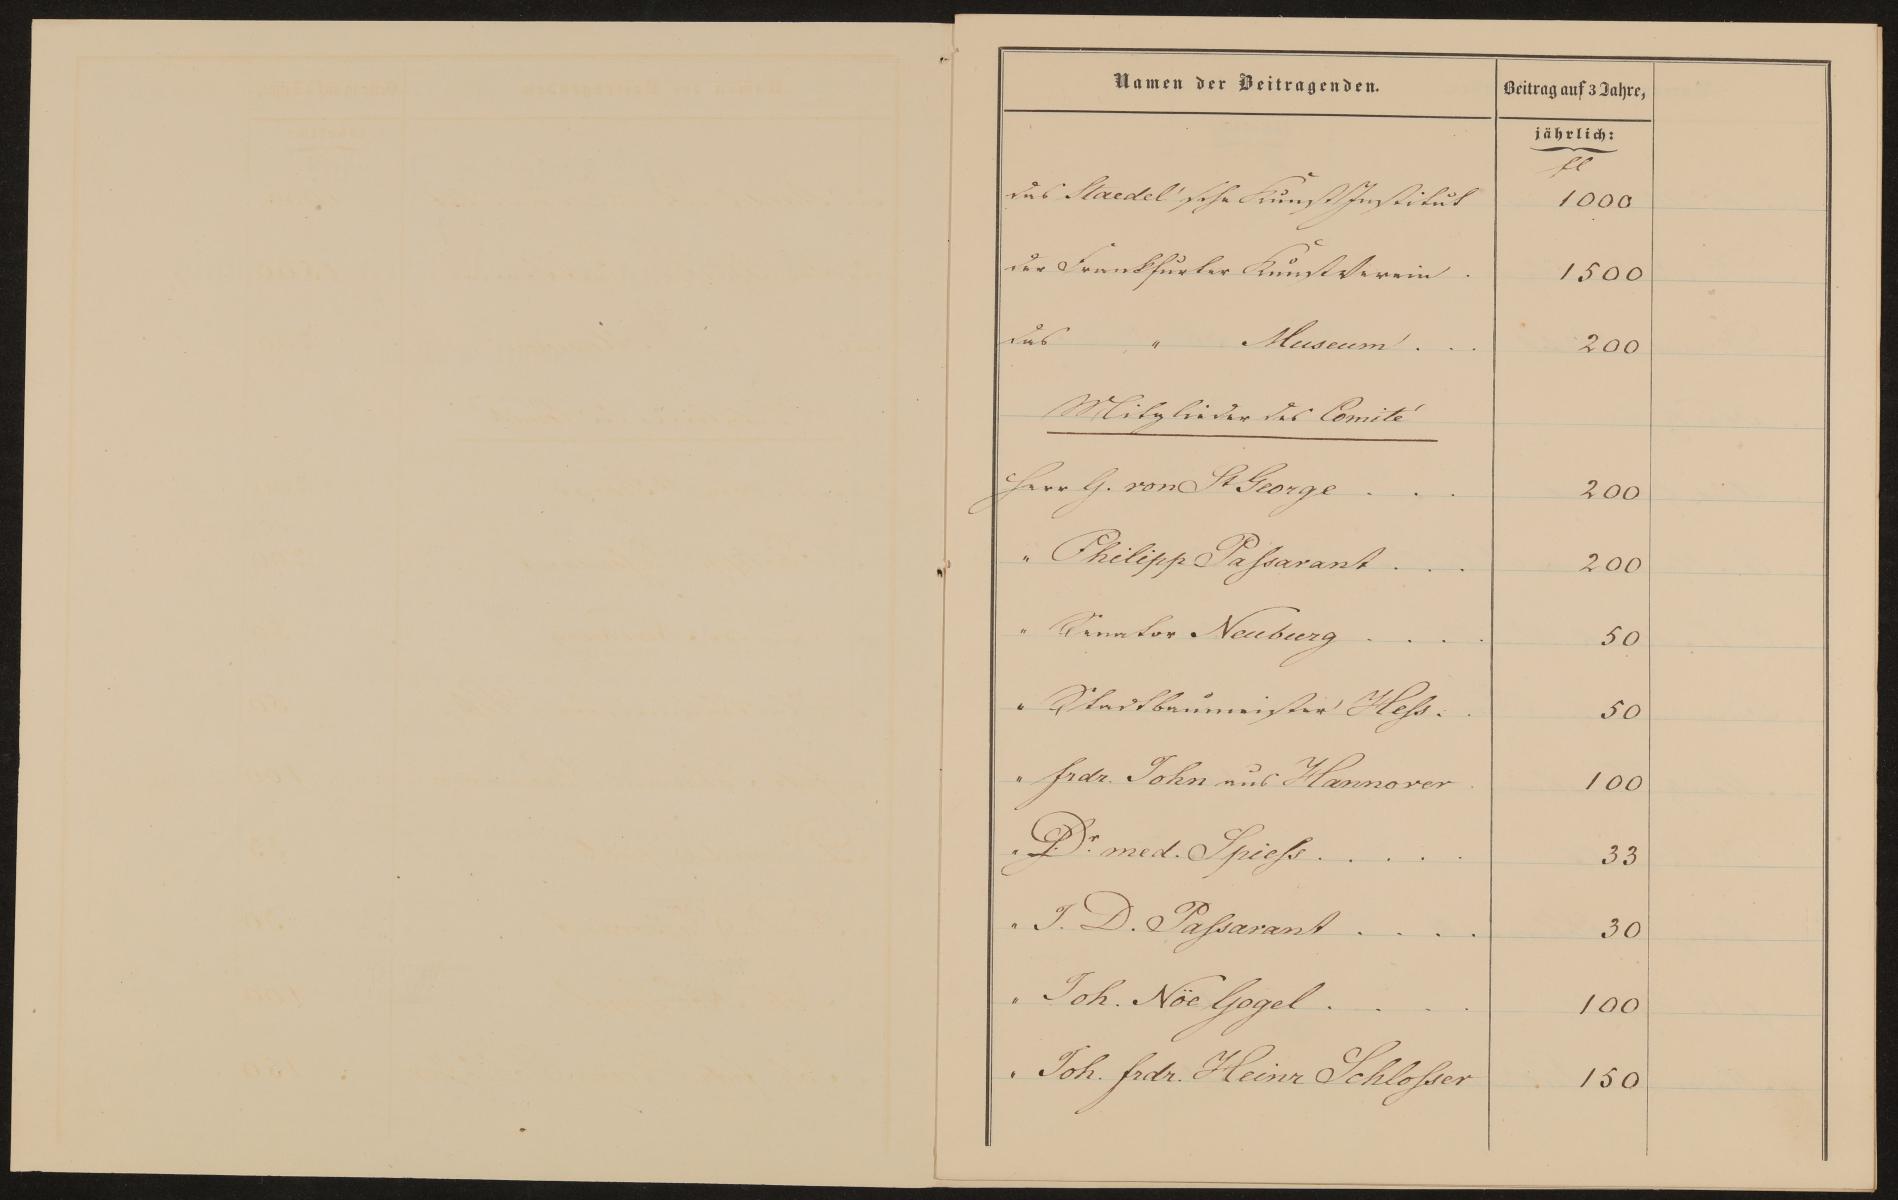 Namen der Beitragenden.
Beitrag auf 3 Jahre,
jährlich:
fl
das Staedel'sche Kunst Institut 1000
der Frankfurter Kunstverein . 1500
das " Museum . . . 200
Mitglieder des Comité
Herr G. von St George . . . 200
" Philipp Paſsavant . . . 200
" Senator Neuburg . . . . 50
" Stadtbaumeister Heſs . . 50
" frdr. John aus Hannover . 100
" Dr. med. Spieſs . . . . . 33
" J. D. Paſsavant . . . . 30
" Joh. Nöe Gogel . . . . 100
" Joh. frdr. Heinr Schloſser 150